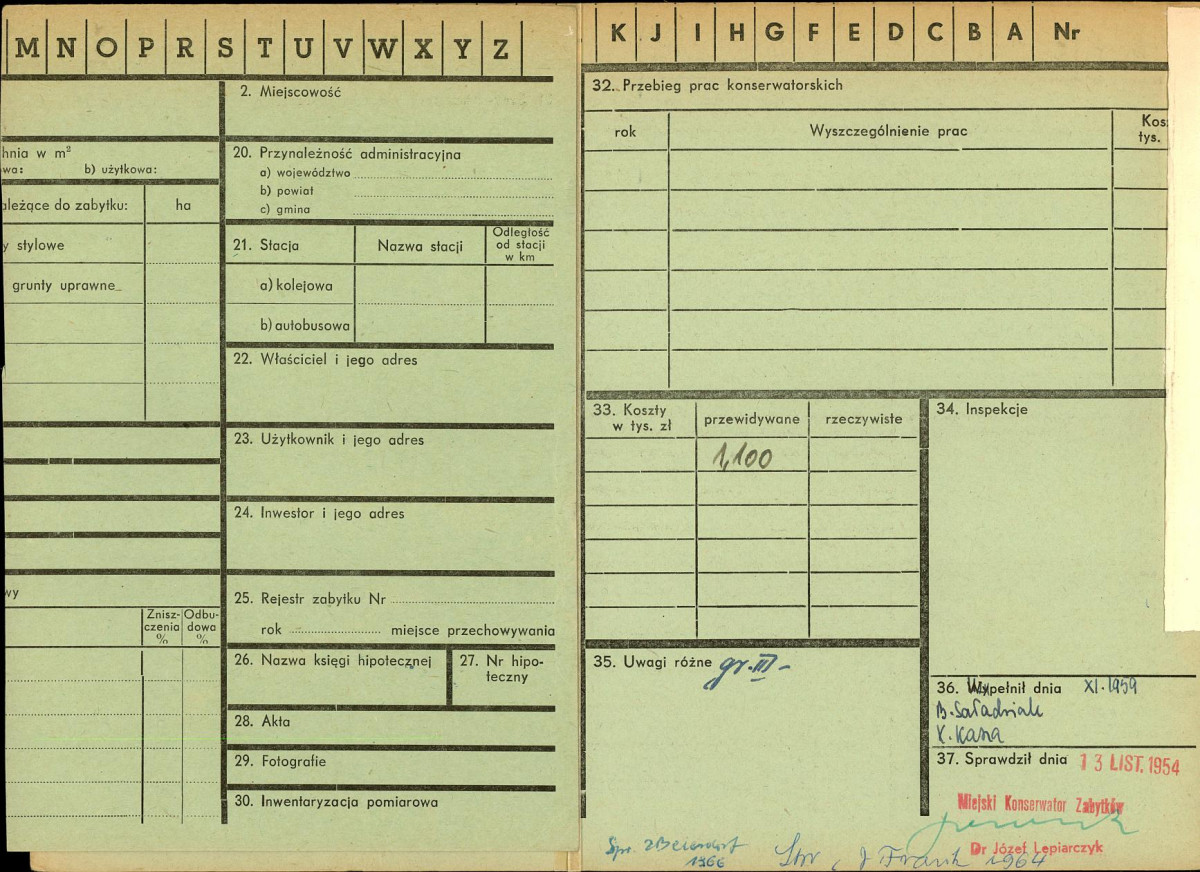 M N O P R S T U V W X Y Z
2. Miejscowość
hnia w m²
wa: b) użytkowa:
20. Przynależność administracyjna
a) województwo
b) powiat
c) gmina
ależące do zabytku: ha
y stylowe
grunty uprawne
21. Stacja Nazwa stacji Odległość
od stacji
w km
a) kolejowa
b) autobusowa
22. Właściciel i jego adres
23. Użytkownik i jego adres
24. Inwestor i jego adres
wy
Znisz-
czenia
%
Odbu-
dowa
%
25. Rejestr zabytku Nr
rok miejsce przechowywania
26. Nazwa księgi hipotecznej
27. Nr hipo-
teczny
28. Akta
29. Fotografie
30. Inwentaryzacja pomiarowa
K J I H G F E D C B A Nr
32. Przebieg prac konserwatorskich
rok Wyszczególnienie prac Kosz
tys.
33. Koszty
w tys. zł
przewidywane rzeczywiste
1,100
34. Inspekcje
35. Uwagi różne gr. III -
36. Wypełnił dnia XI.1959
K. Kasza
37. Sprawdził dnia 13 LIST. 1954
Miejski Konserwator Zabytków
Dr Józef Lepiarczyk
Spr.
1966
J Frank 1964